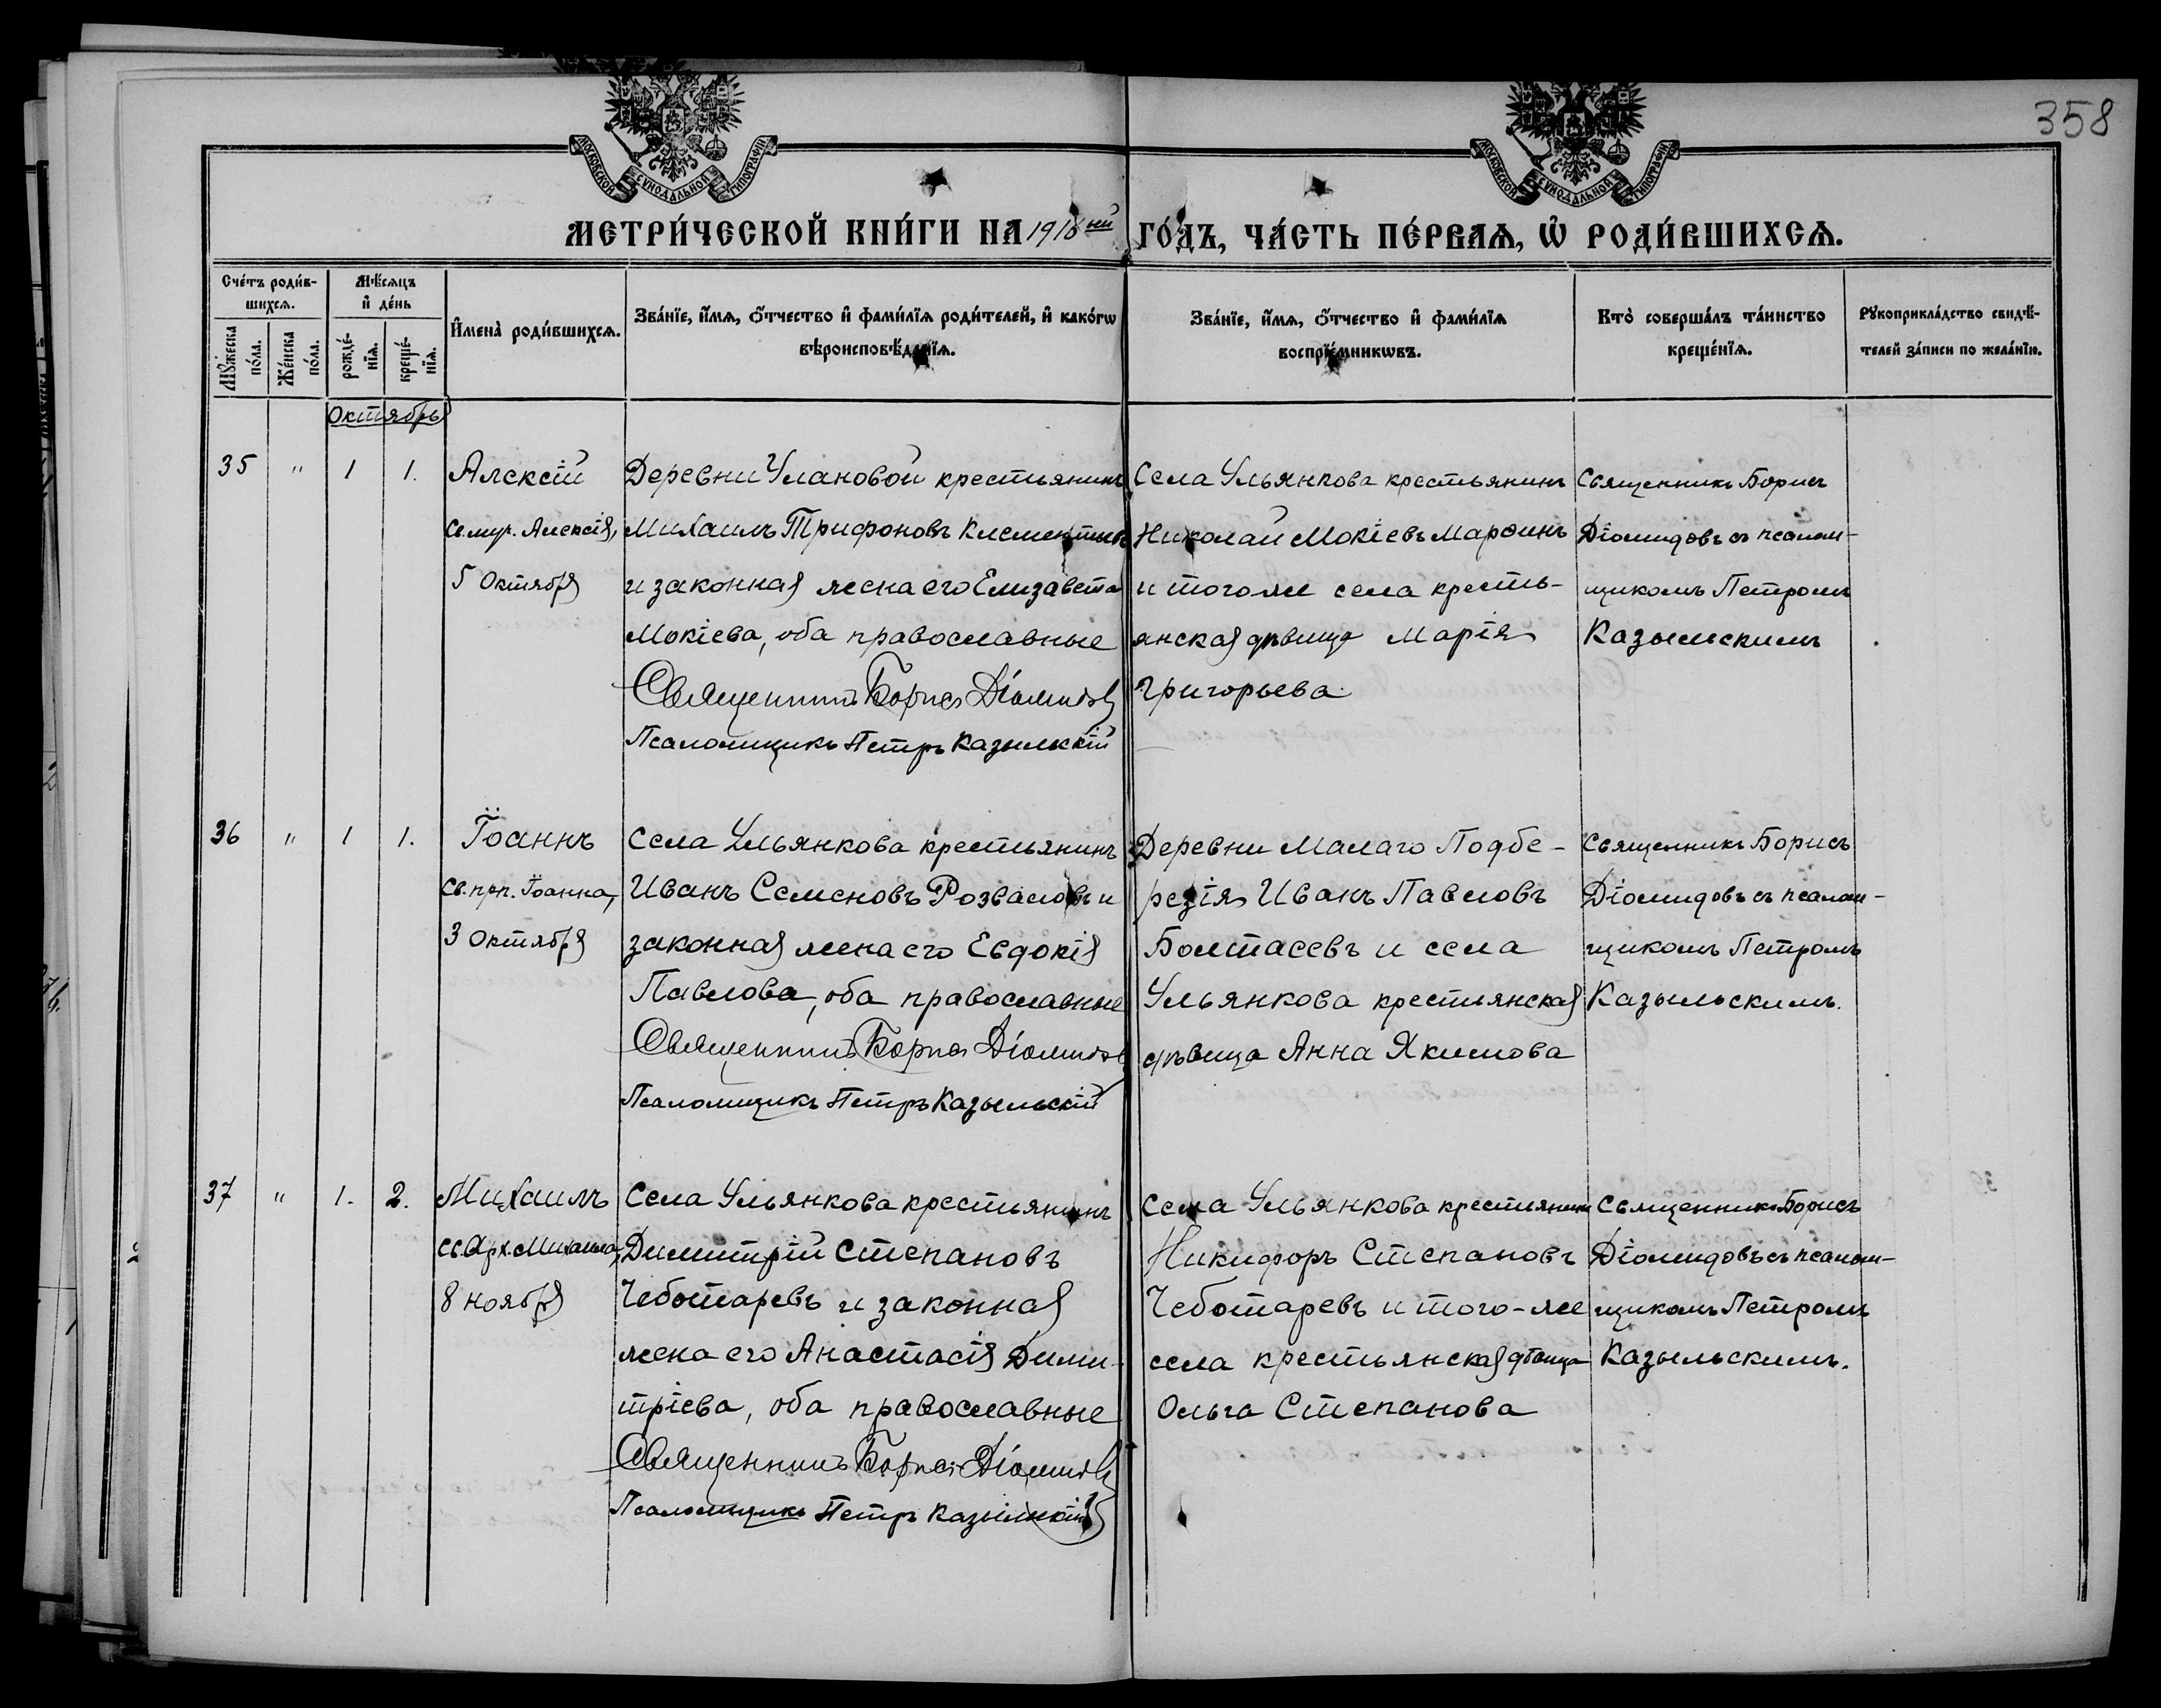 358
МОСКОВСКОЙ СУНОДАЛЬНОЙ ТИПОГРАФІИ
МОСКОВСКОЙ СУНОДАЛЬНОЙ ТИПОГРАФІИ
МЕТРИ́ЧЕСКОЙ КНИ́ГИ НА 1916 ый ГО́ДЪ, ЧА́СТЬ ПЕ́РВАѦ, Ѡ РОДИ́ВШИХСѦ.
Сче́тъ роди́в-
шихсѧ.
Мѣ́сѧцъ
и҆ де́нь
Мꙋ́жеска по́ла.
Же́нска по́ла.
рожде́-нїѧ.
креще́-нїѧ.
И҆мена̀ роди́вшихсѧ.
Зва́нїе, и҆́мѧ, ѻ҆́тчество и҆ фами́лїѧ роди́телей, и҆ како́гѡ
вѣроисповѣ́данїѧ.
Зва́нїе, и҆́мѧ, ѻ҆́тчество и҆ фами́лїѧ
воспрїе́мникѡвъ.
Кто̀ соверша́лъ та́инство
креще́нїѧ.
Рꙋкоприкла́дство свидѣ́-
телей за́писи по жела́нїю.
Октябрь
35 " 1 1.
Алексій
Св. мур. Алексія,
5 Октября
Деревни Улановой крестьянинъ
Михаилъ Трифоновъ Клементьевъ
и законная жена его Елизавета
Мокіева, оба православные
Священникъ Борисъ Діомидовъ
Псаломщикъ Петръ Казыльскій
Села Ульянкова крестьянинъ
Николай Мокіевъ Марѳинъ
и того же села кресть-
янская дѣвица Марія
Григорьева.
Священникъ Борисъ
Діомидовъ съ псалом-
щикомъ Петромъ
Казыльскимъ
36 " 1 1.
Іоаннъ
Св. прп. Іоанна,
3 Октября
Села Ульянкова крестьянинъ
Иванъ Семеновъ Розваловъ и
законная жена его Евдокія
Павлова, оба православные
Священникъ Борисъ Діомидовъ
Псаломщикъ Петръ Казыльскій
Деревни Малаго Подбе-
резія Иванъ Павловъ
Болтасевъ и села
Ульянкова крестьянская
дѣвица Анна Якимова
Священникъ Борисъ
Діомидовъ съ псалом-
щикомъ Петромъ
Казыльскимъ.
37 " 1. 2.
Михаилъ
Св. Арх. Михаила,
8 ноября
Села Ульянкова крестьянинъ
Димитрій Степановъ
Чеботаревъ и законная
жена его Анастасія Дими-
тріева, оба православные
Священникъ Борисъ Діомидовъ
Псаломщикъ Петръ Казыльскій
Села Ульянкова крестьянинъ
Никифоръ Степановъ
Чеботаревъ и того-же
села крестьянская дѣвица
Ольга Степанова
Священникъ Борисъ
Діомидовъ съ псалом-
щикомъ Петромъ
Казыльскимъ.